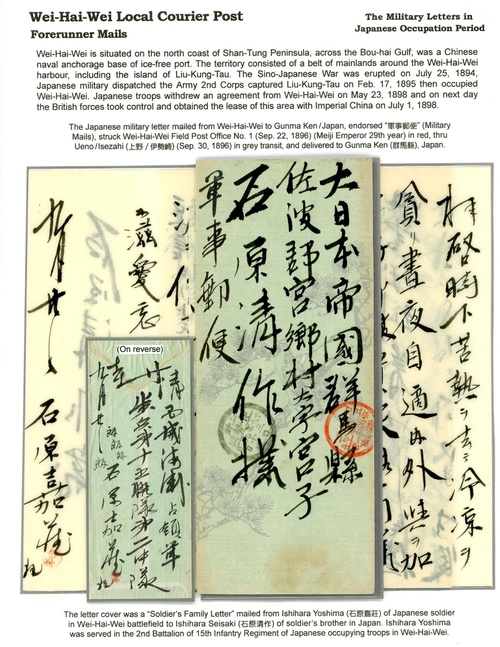 Wei-Hai-Wei Local Courier Post
Forerunner Mails
The Military Letters in
Japanese Occupation Period
Wei-Hai-Wei is situated on the north coast of Shan-Tung Peninsula, across the Bou-hai Gulf, was a Chinese
naval anchorage base of ice-free port. The territory consisted of a belt of mainlands around the Wei-Hai-Wei
harbour, including the island of Liu-Kung-Tau. The Sino-Japanese War was erupted on July 25, 1894,
Japanese military dispatched the Army 2nd Corps captured Liu-Kung-Tau on Feb. 17, 1895 then occupied
Wei-Hai-Wei. Japanese troops withdrew an agreement from Wei-Hai-Wei on May 23, 1898 and on next day
the British forces took control and obtained the lease of this area with Imperial China on July 1, 1898.
The Japanese military letter mailed from Wei-Hai-Wei to Gunma Ken/Japan, endorsed "軍事郵便" (Military
Mails), struck Wei-Hai-Wei Field Post Office No. 1 (Sep. 22, 1896) (Meiji Emperor 29th year) in red, thru
Ueno/Isezahi (上野 / 伊勢崎) (Sep. 30, 1896) in grey transit, and delivered to Gunma Ken (群馬縣), Japan.
拝啓時下苦熱ヲ去テ冷凉ヲ
大日本帝國群馬縣
佐波郡宮郷村大字宮子
石原清作様
軍事郵便
滋愛忘
九月廿
石原嘉藏
(On reverse)
清國威海衛占領軍
歩兵第十五聯隊第二中隊
石原嘉藏
The letter cover was a "Soldier's Family Letter" mailed from Ishihara Yoshima (石原嘉莊) of Japanese soldier
in Wei-Hai-Wei battlefield to Ishihara Seisaki (石原清作) of soldier's brother in Japan. Ishihara Yoshima
was served in the 2nd Battalion of 15th Infantry Regiment of Japanese occupying troops in Wei-Hai-Wei.